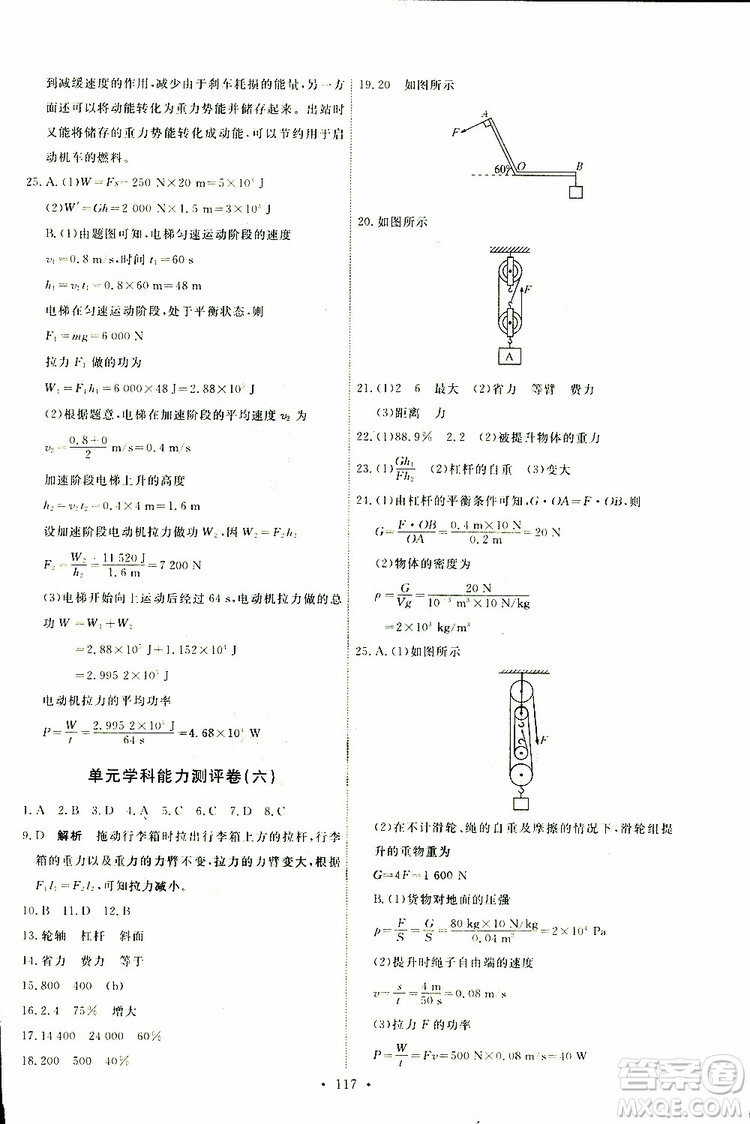 到减缓速度的作用,减少由于刹车耗损的能量,另一方
面还可以将动能转化为重力势能并储存起来。出站时
又能将储存的重力势能转化成动能,可以节约用于启
动机车的燃料。
25. A. (1)W=Fs=250 N×20 m=5×10³ J
(2)W′=Gh=2 000 N×1.5 m=3×10³ J
B. (1)由题图可知,电梯匀速运动阶段的速度
v₁=0.8 m/s,时间 t₁=60 s
h₁=v₁t₁=0.8×60 m=48 m
电梯在匀速运动阶段,处于平衡状态,则
F₁=mg=6 000 N
拉力 F₁ 做的功为
W₁=F₁h₁=6 000×48 J=2.88×10⁵ J
(2)根据题意,电梯在加速阶段的平均速度 v₂ 为
v₂=(0.8+0)/2 m/s=0.4 m/s
加速阶段电梯上升的高度
h₂=v₂t₂=0.4×4 m=1.6 m
设加速阶段电动机拉力做功 W₂,因 W₂=F₂h₂
F₂=W₂/h₂=11 520 J/1.6 m=7 200 N
(3)电梯开始向上运动后经过 64 s,电动机拉力做的总
功 W=W₁+W₂
=2.88×10⁵ J+1.152×10⁴ J
=2.995 2×10⁵ J
电动机拉力的平均功率
P=W/t=2.995 2×10⁵ J/64 s=4.68×10³ W
单元学科能力测评卷(六)
1. A 2. B 3. D 4. A 5. C 6. B 7. D 8. C
9. D 解析 拖动行李箱时拉出行李箱上方的拉杆,行李
箱的重力以及重力的力臂不变,拉力的力臂变大,根据
F₁l₁=F₂l₂,可知拉力减小。
10. B 11. D 12. B
13. 轮轴 杠杆 斜面
14. 省力 费力 等于
15. 800 400 (b)
16. 2.4 75% 增大
17. 14 400 24 000 60%
18. 200 500 40%
19. 20 如图所示
A
F
60°
O
B
20. 如图所示
F
A
21. (1)2 6 最大 (2)省力 等臂 费力
(3)距离 力
22. (1)88.9% 2.2 (2)被提升物体的重力
23. (1)Gh₁/Fh₂ (2)杠杆的自重 (3)变大
24. (1)由杠杆的平衡条件可知,G·OA=F·OB,则
G=F·OB/OA=0.4 m×10 N/0.2 m=20 N
(2)物体的密度为
ρ=G/Vg=20 N/(10⁻³ m³×10 N/kg)
=2×10³ kg/m³
25. A. (1)如图所示
F
(2)在不计滑轮、绳的自重及摩擦的情况下,滑轮组提
升的重物重为
G=4F=1 600 N
B. (1)货物对地面的压强
p=F/S=G/S=80 kg×10 N/kg/0.04 m²=2×10⁴ Pa
(2)提升时绳子自由端的速度
v=s/t=4 m/50 s=0.08 m/s
(3)拉力 F 的功率
P=W/t=Fv=500 N×0.08 m/s=40 W
117
答案圈
MXQE.COM